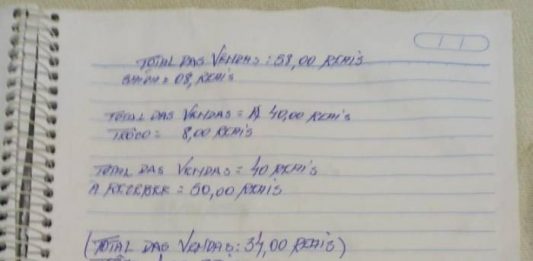 TOTAL DAS VENDAS: 58,00 REAIS
08, REAIS
TOTAL DAS VENDAS = R$ 40,00 REAIS
TROCO = 8,00 REAIS
TOTAL DAS VENDAS = 40 REAIS
A RECEBER = 50,00 REAIS
(TOTAL DAS VENDAS: 34,00 REAIS)